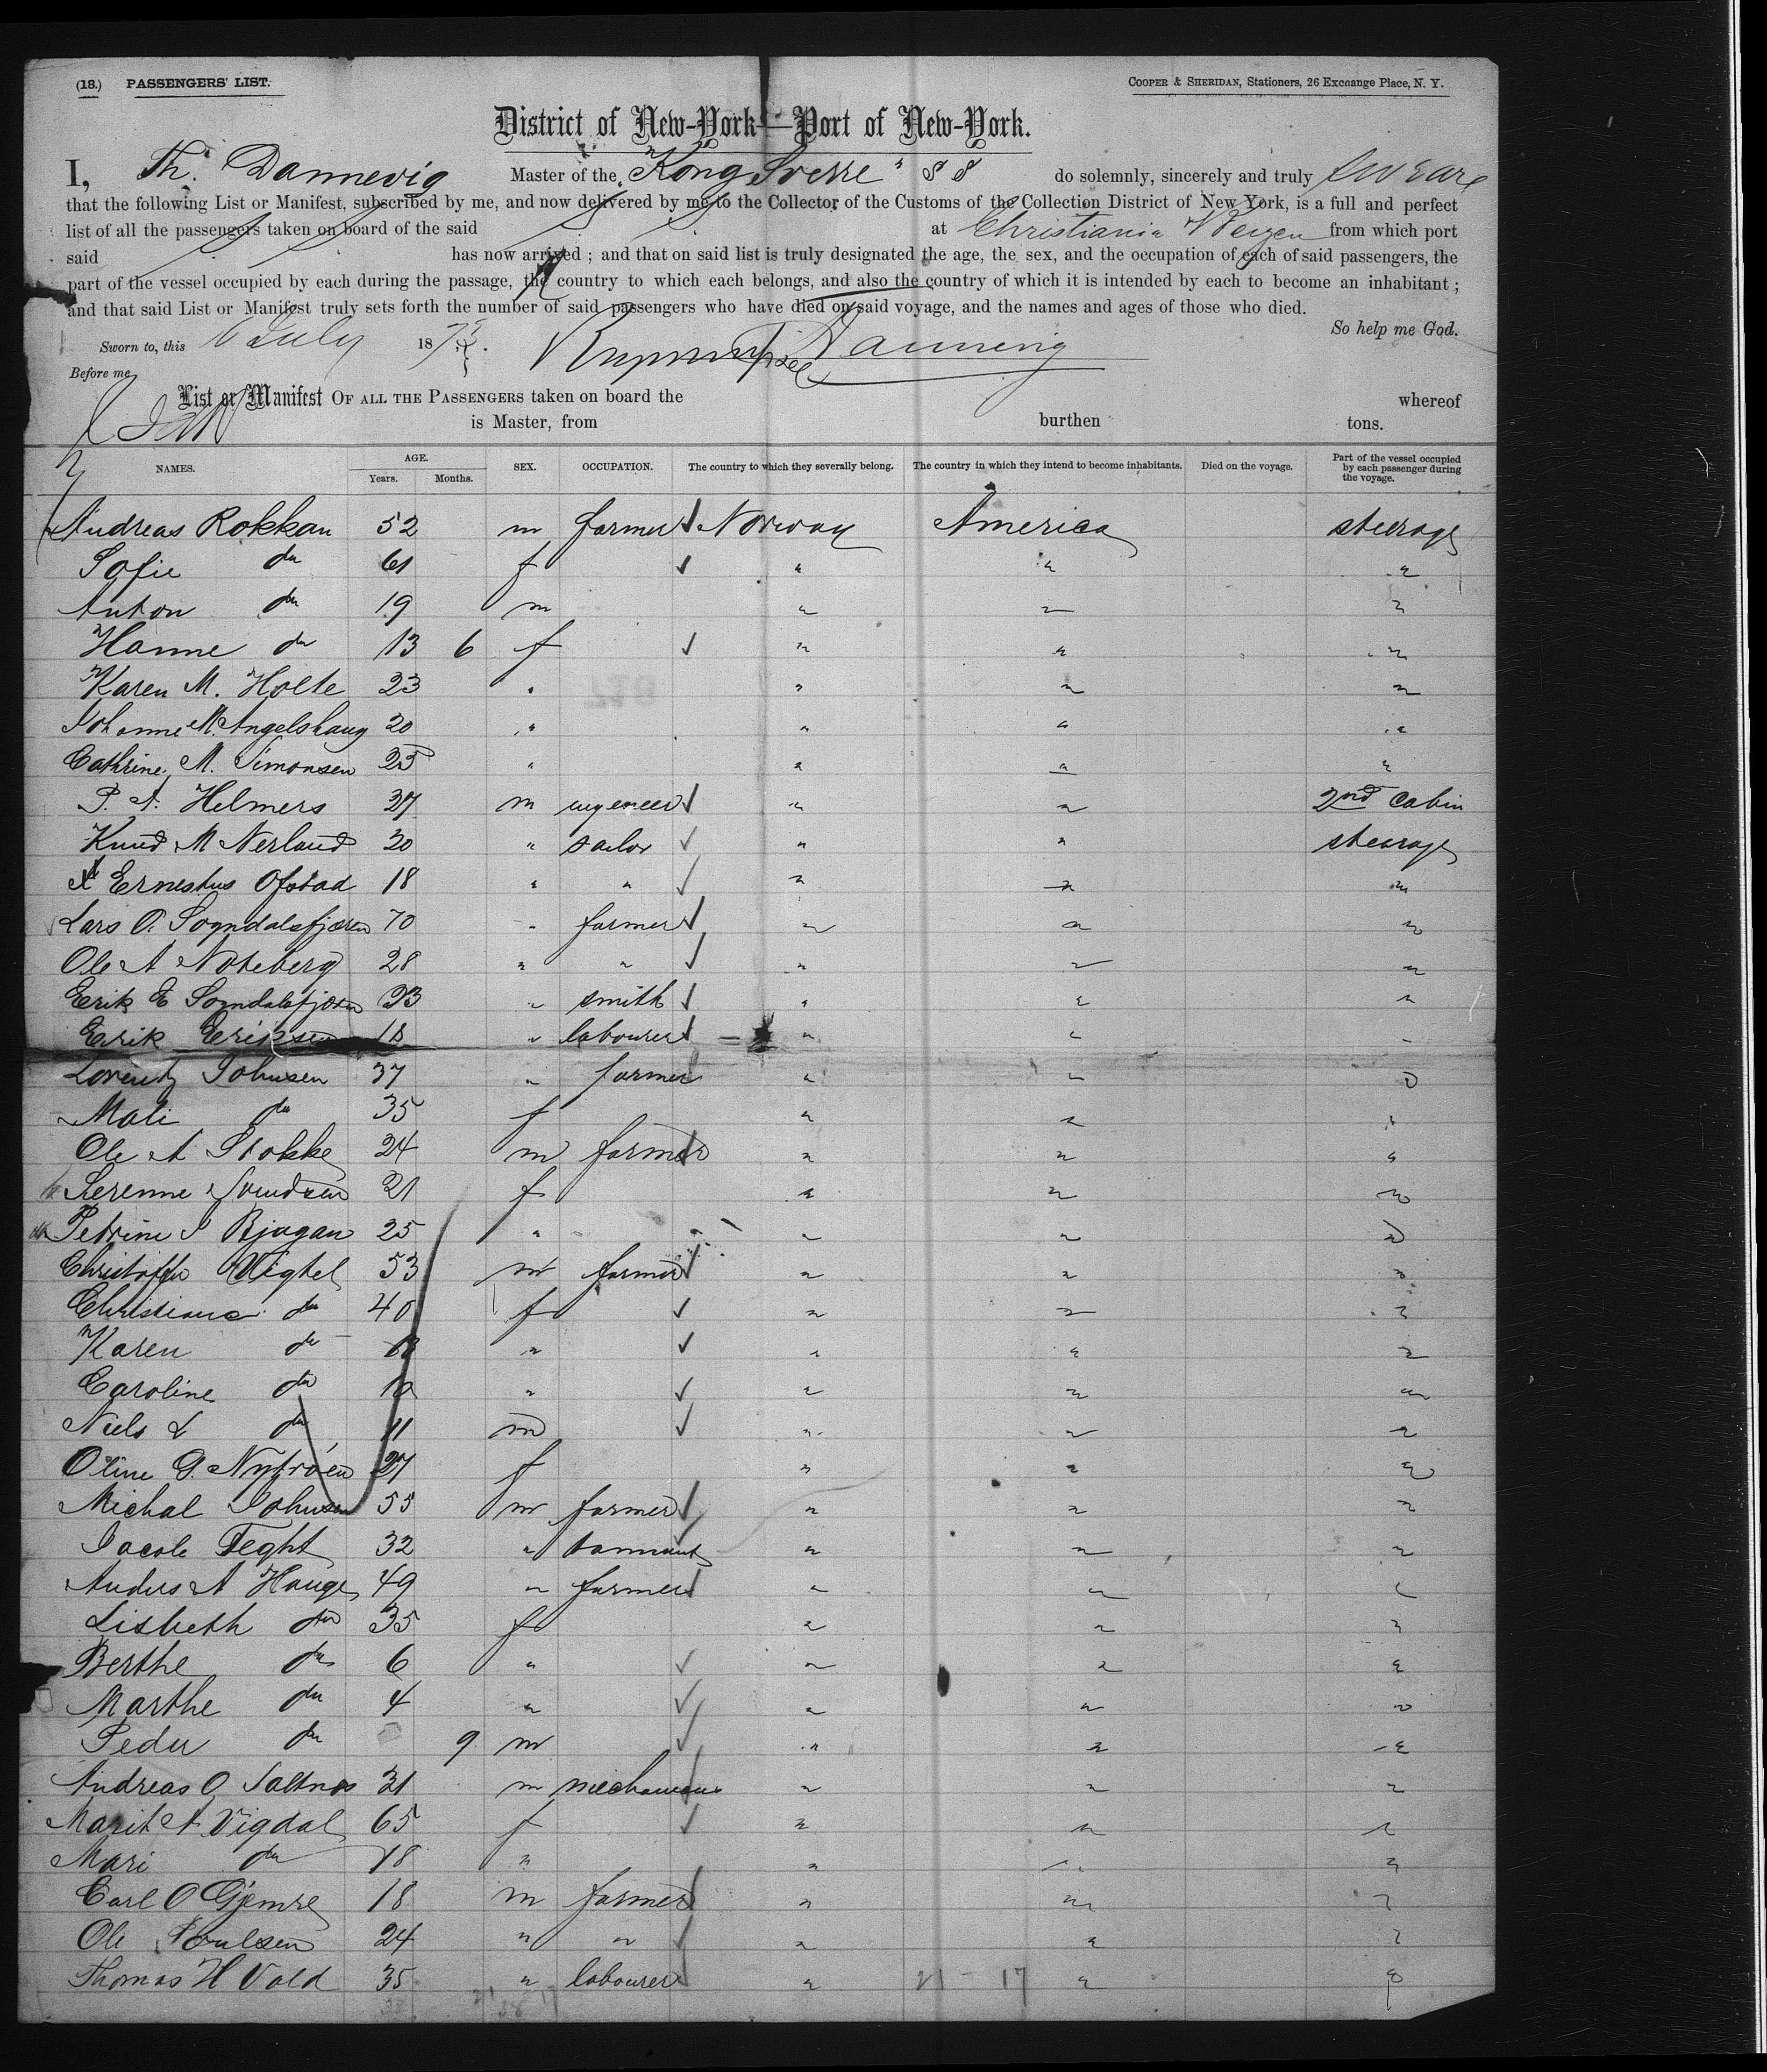 (18.) PASSENGERS' LIST. COOPER & SHERIDAN, Stationers, 26 Exchange Place, N. Y.
District of New-York—Port of New-York.
I, Th. Dannevig Master of the "Kong Sverre" S S do solemnly, sincerely and truly swear
that the following List or Manifest, subscribed by me, and now delivered by me to the Collector of the Customs of the Collection District of New York, is a full and perfect
list of all the passengers taken on board of the said at Christiania & Bergen from which port
said has now arrived ; and that on said list is truly designated the age, the sex, and the occupation of each of said passengers, the
part of the vessel occupied by each during the passage, the country to which each belongs, and also the country of which it is intended by each to become an inhabitant ;
and that said List or Manifest truly sets forth the number of said passengers who have died on said voyage, and the names and ages of those who died.
So help me God.
Sworn to, this July 187 Dannevig
Before me
List or Manifest OF ALL THE PASSENGERS taken on board the whereof
is Master, from burthen tons.
NAMES. AGE. Years. Months. SEX. OCCUPATION. The country to which they severally belong. The country in which they intend to become inhabitants. Died on the voyage. Part of the vessel occupied by each passenger during the voyage.
Andreas Rokkan 52 m farmer Norway America steerage
Sofie do 61 f " " "
Anton do 19 m " " "
Hanne do 13 6 f " " "
Karen M. Holte 23 " " " "
Johanne M. Angelshaug 20 " " " "
Cathrine M. Simonsen 25 " " " "
P. A. Helmers 37 m " " 2nd Cabin
Knud M Nerland 30 " sailor " " steerage
Ernestus Ofstad 18 " " " " "
Lars O. Sogndalsfjæren 70 " farmer " " "
Ole A Noteberg 28 " " " " "
Erik E Sogndalsfjæren 33 " smith " " "
Erik Eriksen 18 " labourer " " "
Lorentz Johnsen 37 " farmer " " "
Mali do 35 f " " "
Ole A Stokke 24 m farmer " " "
Serenne Svendsen 21 f " " "
Petrine J Bjagan 25 " " " "
Christoffer Vigtel 53 m farmer " " "
Christiane do 40 f " " "
Karen do " " " "
Caroline do " " " "
Niels L do 11 m " " "
Oline G. Nytrøen 27 f " " "
Michal Johnsen 55 m farmer " " "
Jacob Feght 32 " " " "
Anders A Hauge 49 " farmer " " "
Lisbeth do 35 f " " "
Berthe do 6 " " " "
Marthe do 4 " " " "
Peder do 9 m " " "
Andreas O Saltnes 31 m mechanicus " " "
Marit A Vigdal 65 f " " "
Mari do 18 " " " "
Carl O Gjemse 18 m farmer " " "
Ole Poulsen 24 " " " " "
Thomas H Vold 35 " labourer " " "
21 - 17